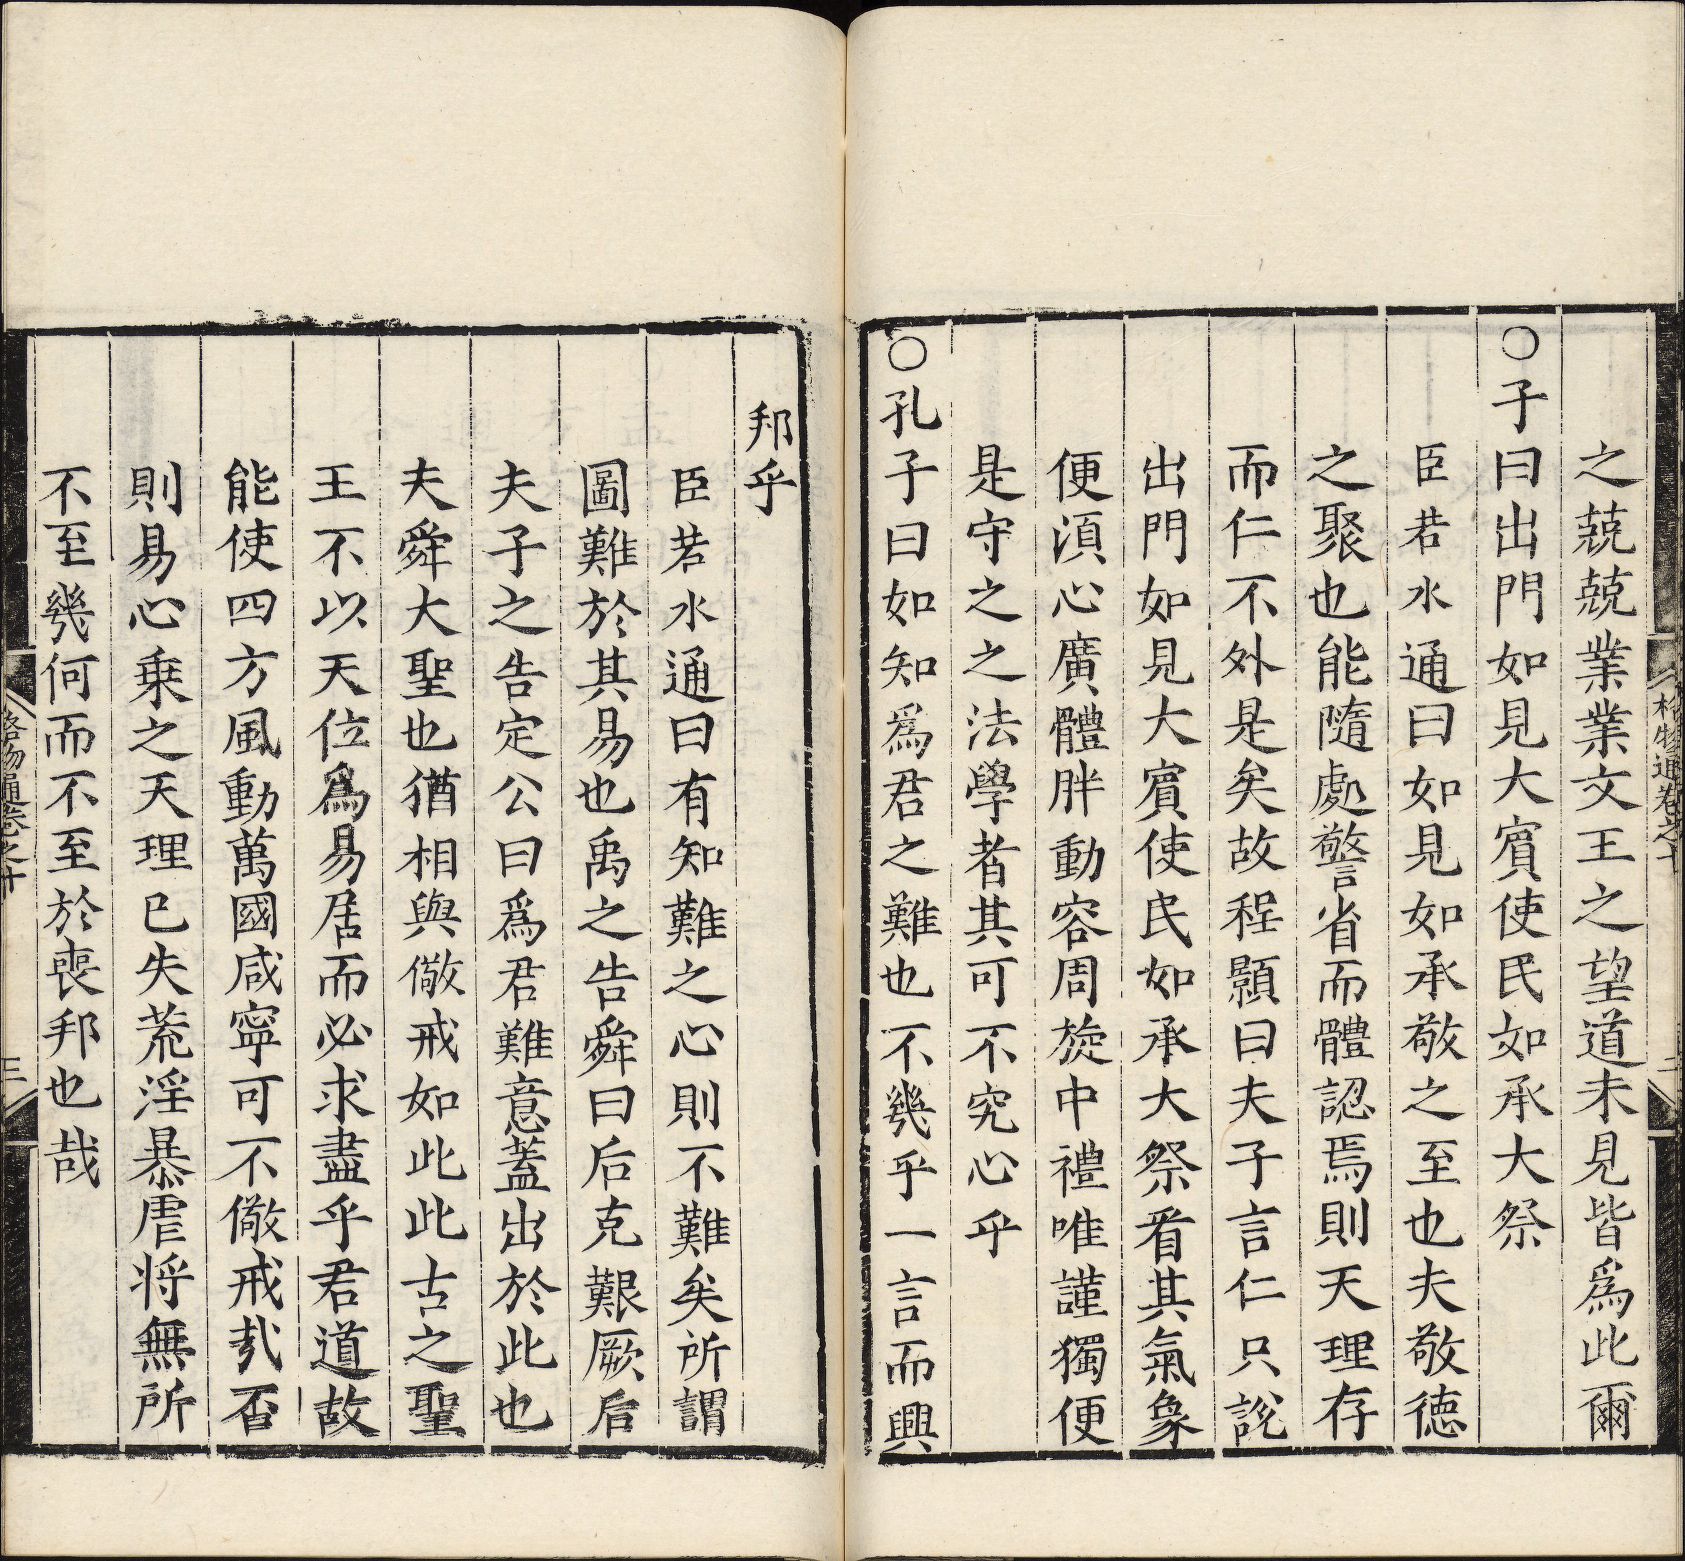 之兢兢業業文王之望道未見皆爲此爾
○子曰出門如見大賓使民如承大祭
臣若水通曰如見如承敬之至也夫敬德
之聚也能隨處警省而體認焉則天理存
而仁不外是矣故程顥曰夫子言仁只說
出門如見大賓使民如承大祭看其氣象
便須心廣體胖動容周旋中禮唯謹獨便
是守之之法學者其可不究心乎
○孔子曰如知爲君之難也不幾乎一言而興
邦乎
臣若水通曰有知難之心則不難矣所謂
圖難於其易也禹之告舜曰后克艱厥后
夫子之告定公曰爲君難意蓋出於此也
夫舜大聖也猶相與儆戒如此此古之聖
王不以天位爲易居而必求盡乎君道故
能使四方風動萬國咸寧可不儆戒哉否
則易心乗之天理已失荒淫暴虐将無所
不至幾何而不至於喪邦也哉
格物通卷之十
三